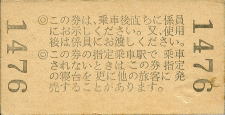 1476
◎この券は、乗車後直ちに係員
にお示しください。又、使用
後は係員にお渡しください。
◎この券の指定乗車駅で、乗車
されないときはこの券指定
の寝台を更に他の旅客に発
売することがあります。
1476